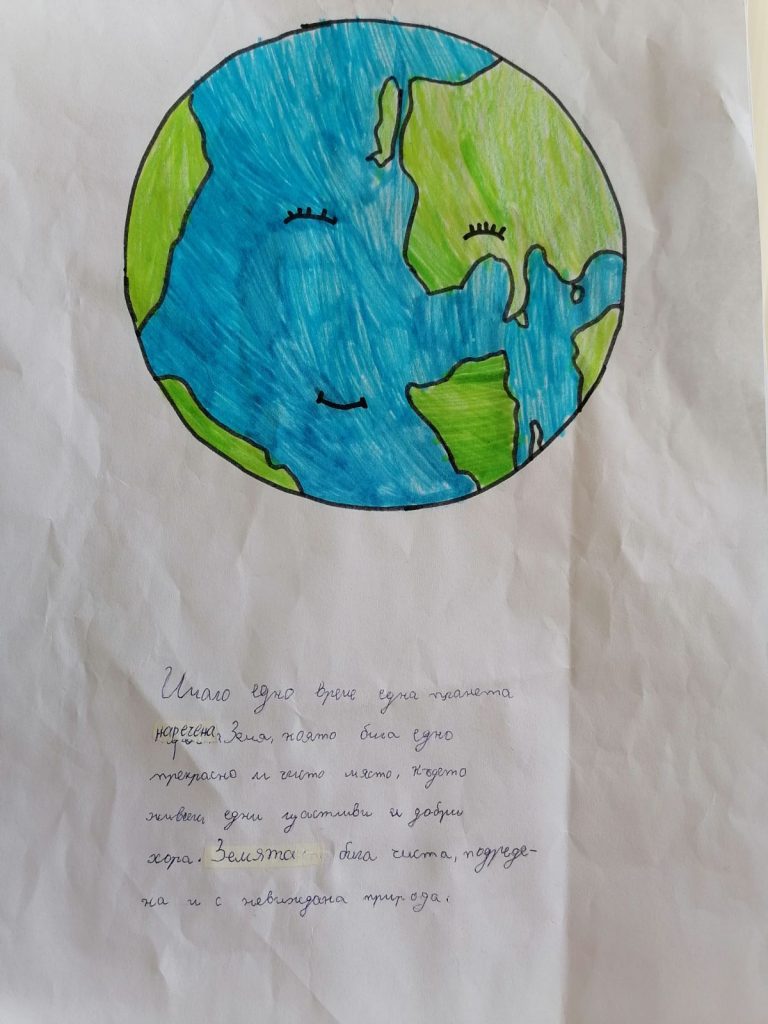 Имало едно време една планета
наречена Земя, която била едно
прекрасно и чисто място, където
живеели едни щастливи и добри
хора. Земята била чиста, подреде-
на и с невиждана природа.